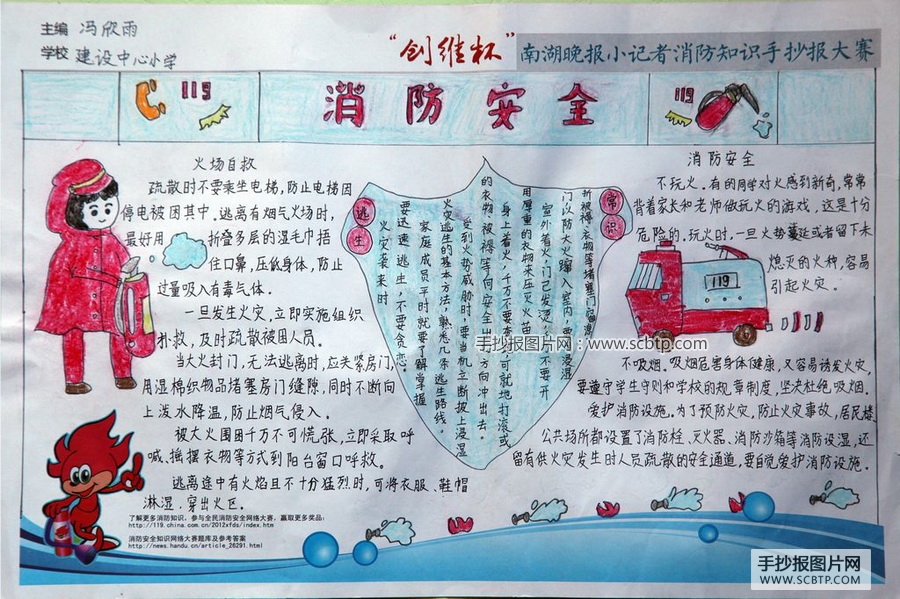 主编 冯欣雨
学校 建设中心小学
“创维杯”南湖晚报小记者消防知识手抄报大赛
119
消防安全
119
火场自救
疏散时不要乘坐电梯,防止电梯因
停电被困其中.逃离有烟气火场时,
最好用 折叠多层的湿毛巾捂
住口鼻,压低身体,防止
过量吸入有毒气体.
一旦发生火灾,立即实施组织
扑救,及时疏散被困人员.
当大火封门,无法逃离时,应关紧房门,
用湿棉织物品堵塞房门缝隙,同时不断向
上泼水降温,防止烟气侵入.
被大火围困千万不可慌张,立即采取呼
喊、摇摆衣物等方式到阳台窗口呼救.
逃离途中有火焰且不十分猛烈时,可将衣服、鞋帽
淋湿.穿出火区.
逃生
常识
火灾袭来时
要迅速逃生,不要贪恋
家庭成员平时就要了解掌握
火灾逃生的基本方法,熟悉几条逃生路线.
受到火势威胁时,要当机立断披上浸湿
的衣物、被褥等向安全出口方向冲出去.
身上着火,千万不要奔跑,可就地打滚或
用厚重的衣物来压灭火苗
室外着火,门已发烫,千万不要开
门以防大火蹿入室内,要用浸湿
消防安全
不玩火.有的同学对火感到新奇,常常
背着家长和老师做玩火的游戏,这是十分
危险的.玩火时,一旦火势蔓延或者留下未
熄灭的火种,容易
引起火灾.
119
不吸烟.吸烟危害身体健康,又容易诱发火灾,
要遵守学生守则和学校的规章制度,坚决杜绝吸烟.
爱护消防设施.为了预防火灾,防止火灾事故,居民楼
公共场所都设置了消防栓、灭火器、消防沙箱等消防设湿,还
留有供火灾发生时人员疏散的安全通道,要自觉爱护消防设施.
手抄报图片网:www.scbtp.com
了解更多消防知识,参与全民消防安全网络大赛,赢取更多奖品:
http://119.china.com.cn/2012xfds/index.htm
消防安全知识网络大赛题库及参考答案
http://news.handu.cn/article_26291.html
手抄报图片网
WWW.SCBTP.COM